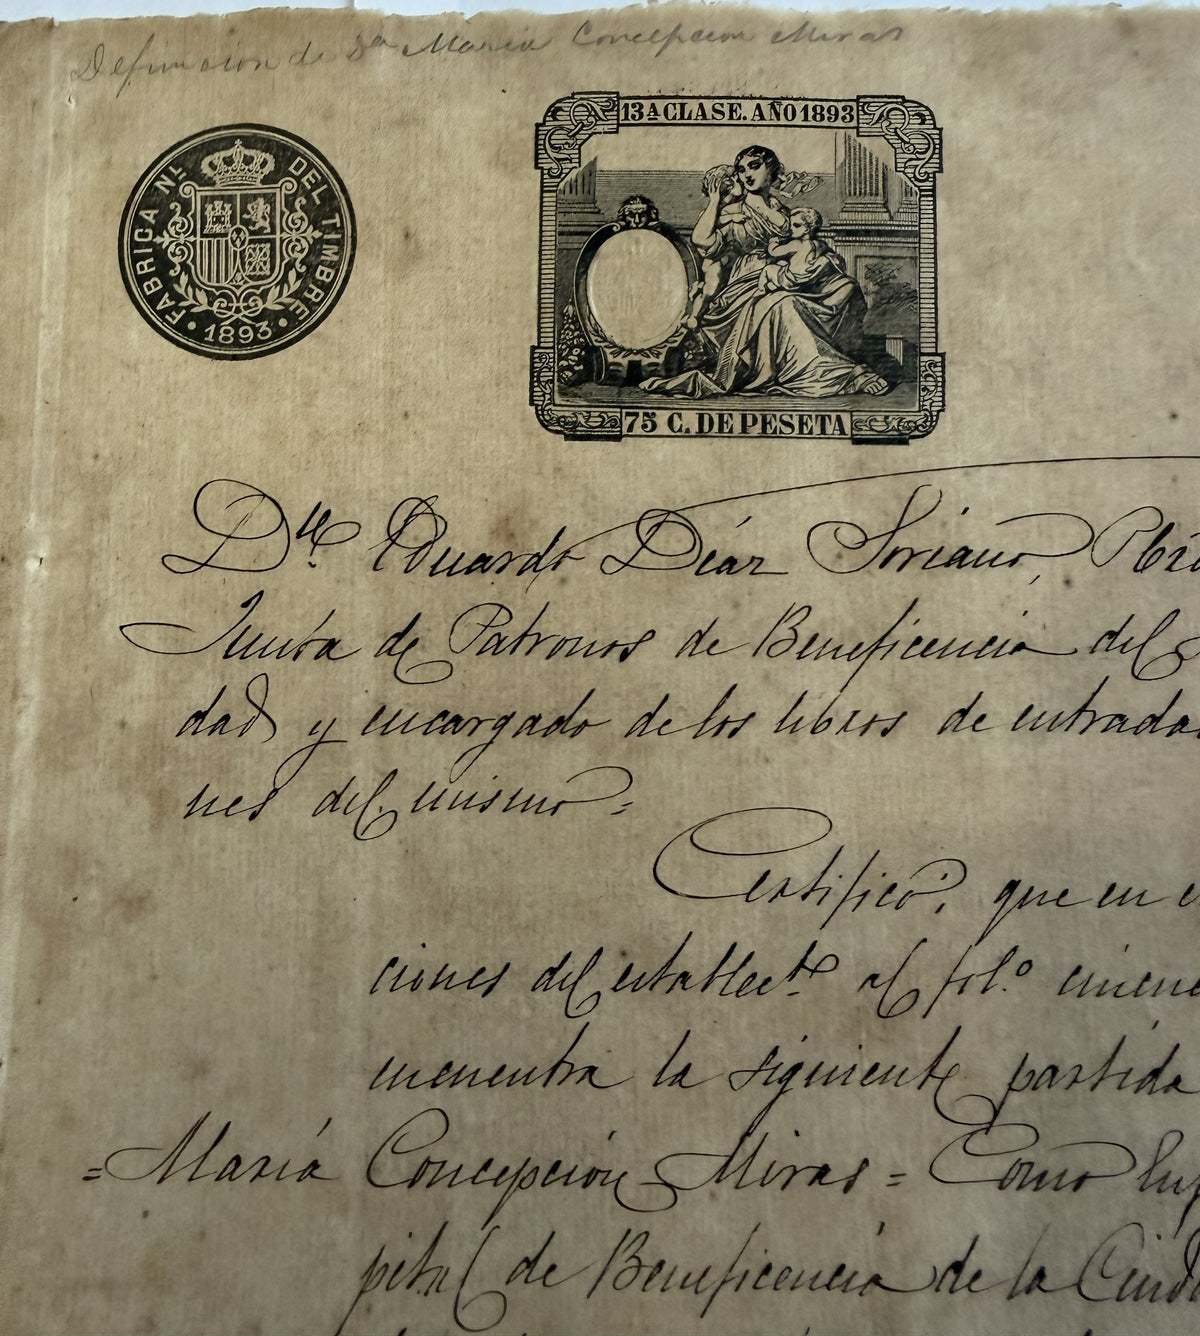 Defuncion de Dª Maria Concepcion Miras
FABRICA NL. DEL TIMBRE
• 1893 •
13A CLASE. AÑO 1893
75 C. DE PESETA
Eduardo Díaz Soriano,
Junta de Patronos de Beneficencia del
dad y encargado de los libros de entrada
nes del mismo=
Certifico; que en
ciones del establect.º al fol.º
encuentra la siguiente partida
=María Concepción Miras= Como
pital de Beneficencia de la Ciud